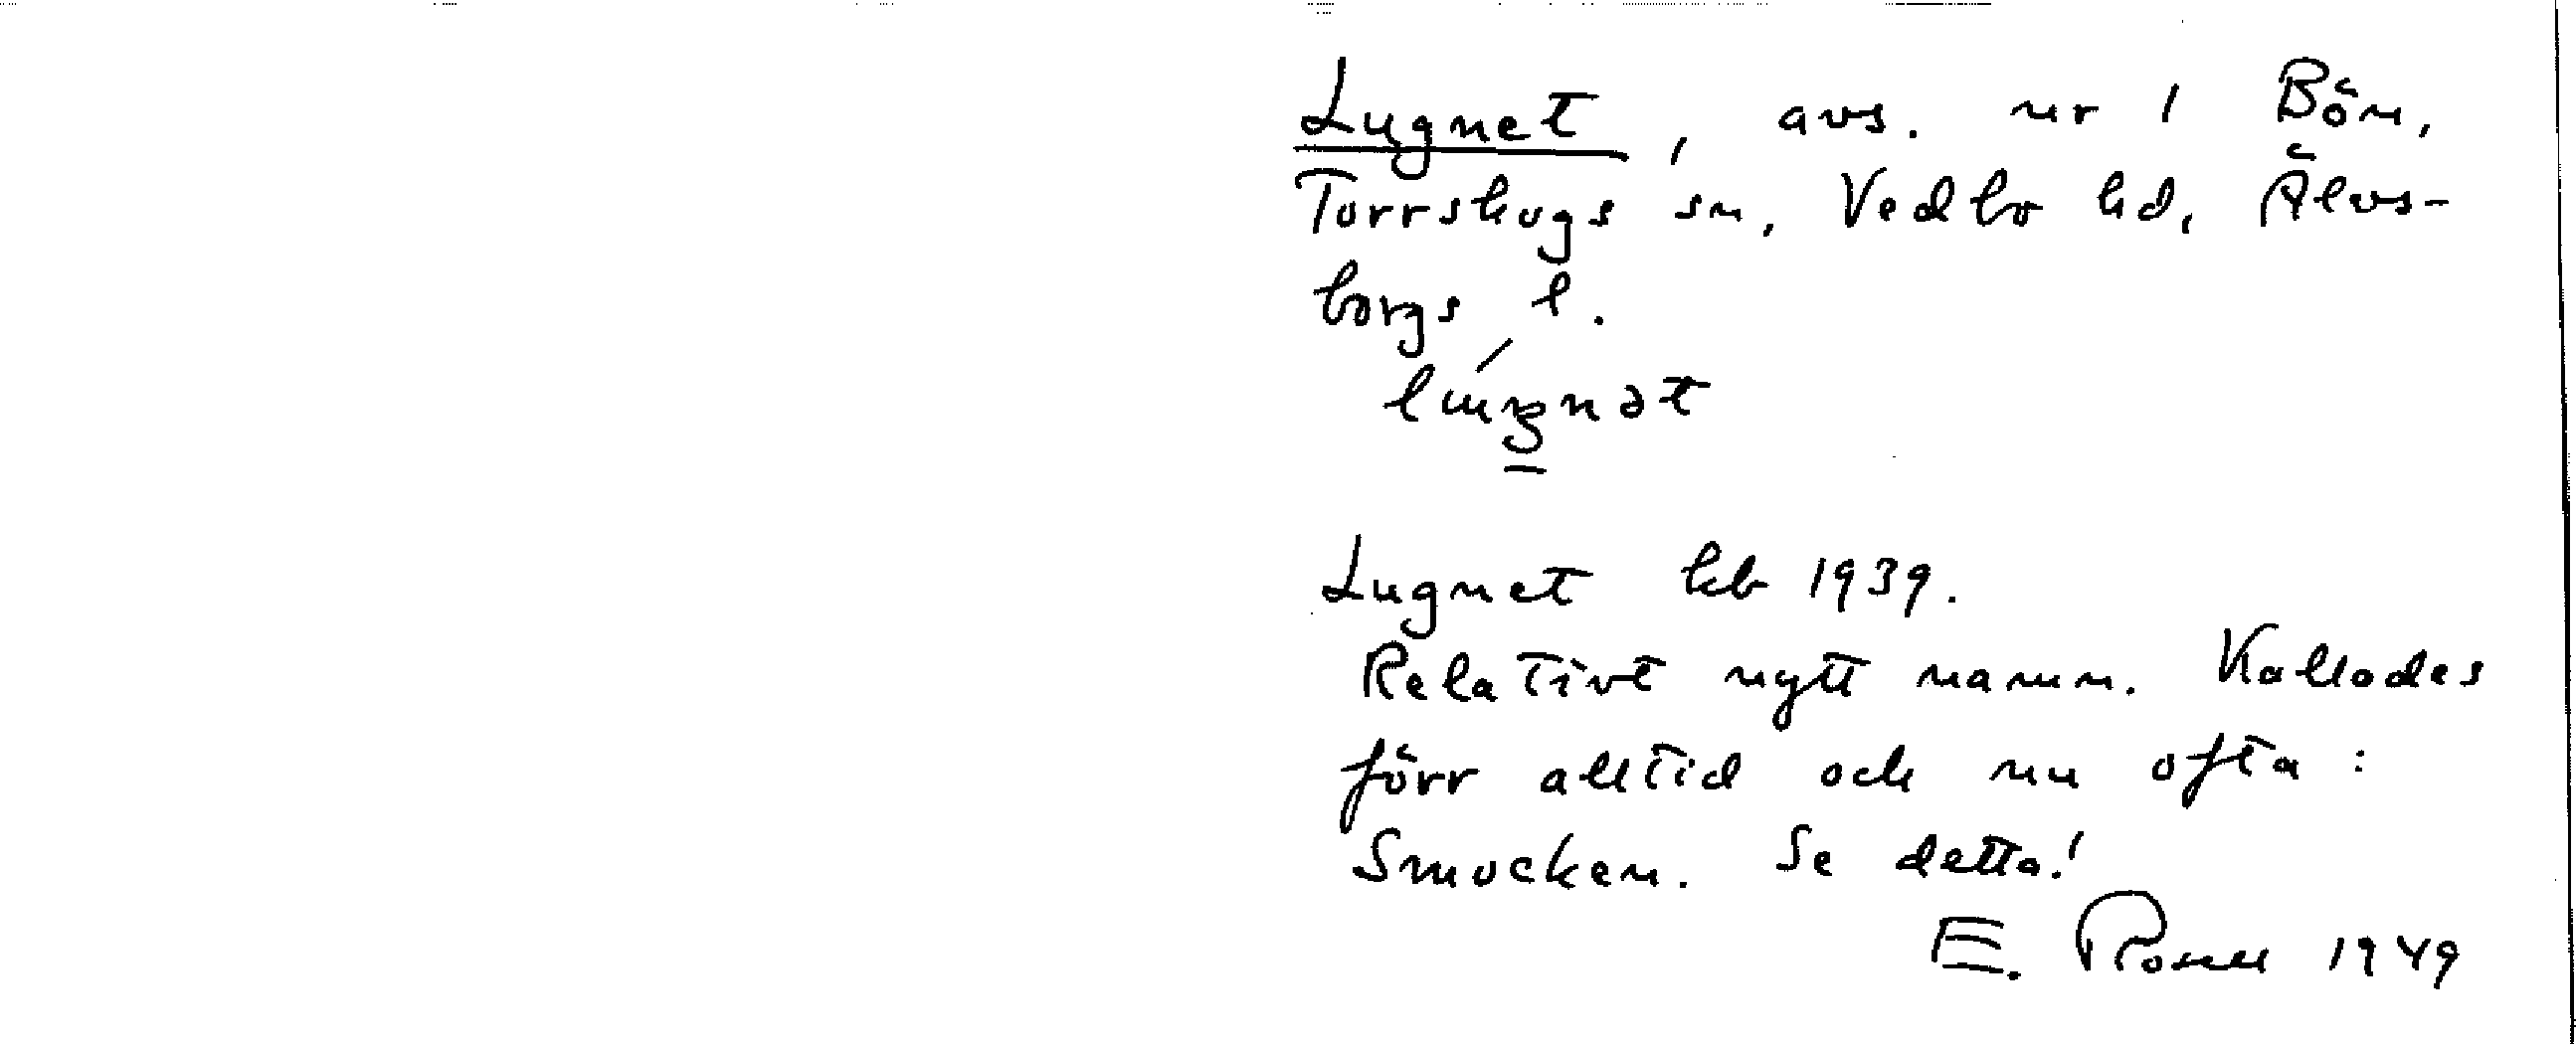 Lugnet, avs. nr 1 Bön,
Torrskogs sn, Vedbo hd, Älvs-
borgs l.
Lugnet kb 1939.
Relativt nytt namn. Kallades
förr alltid och nu ofta:
Smocken. Se detta!
E. Rosell 1949